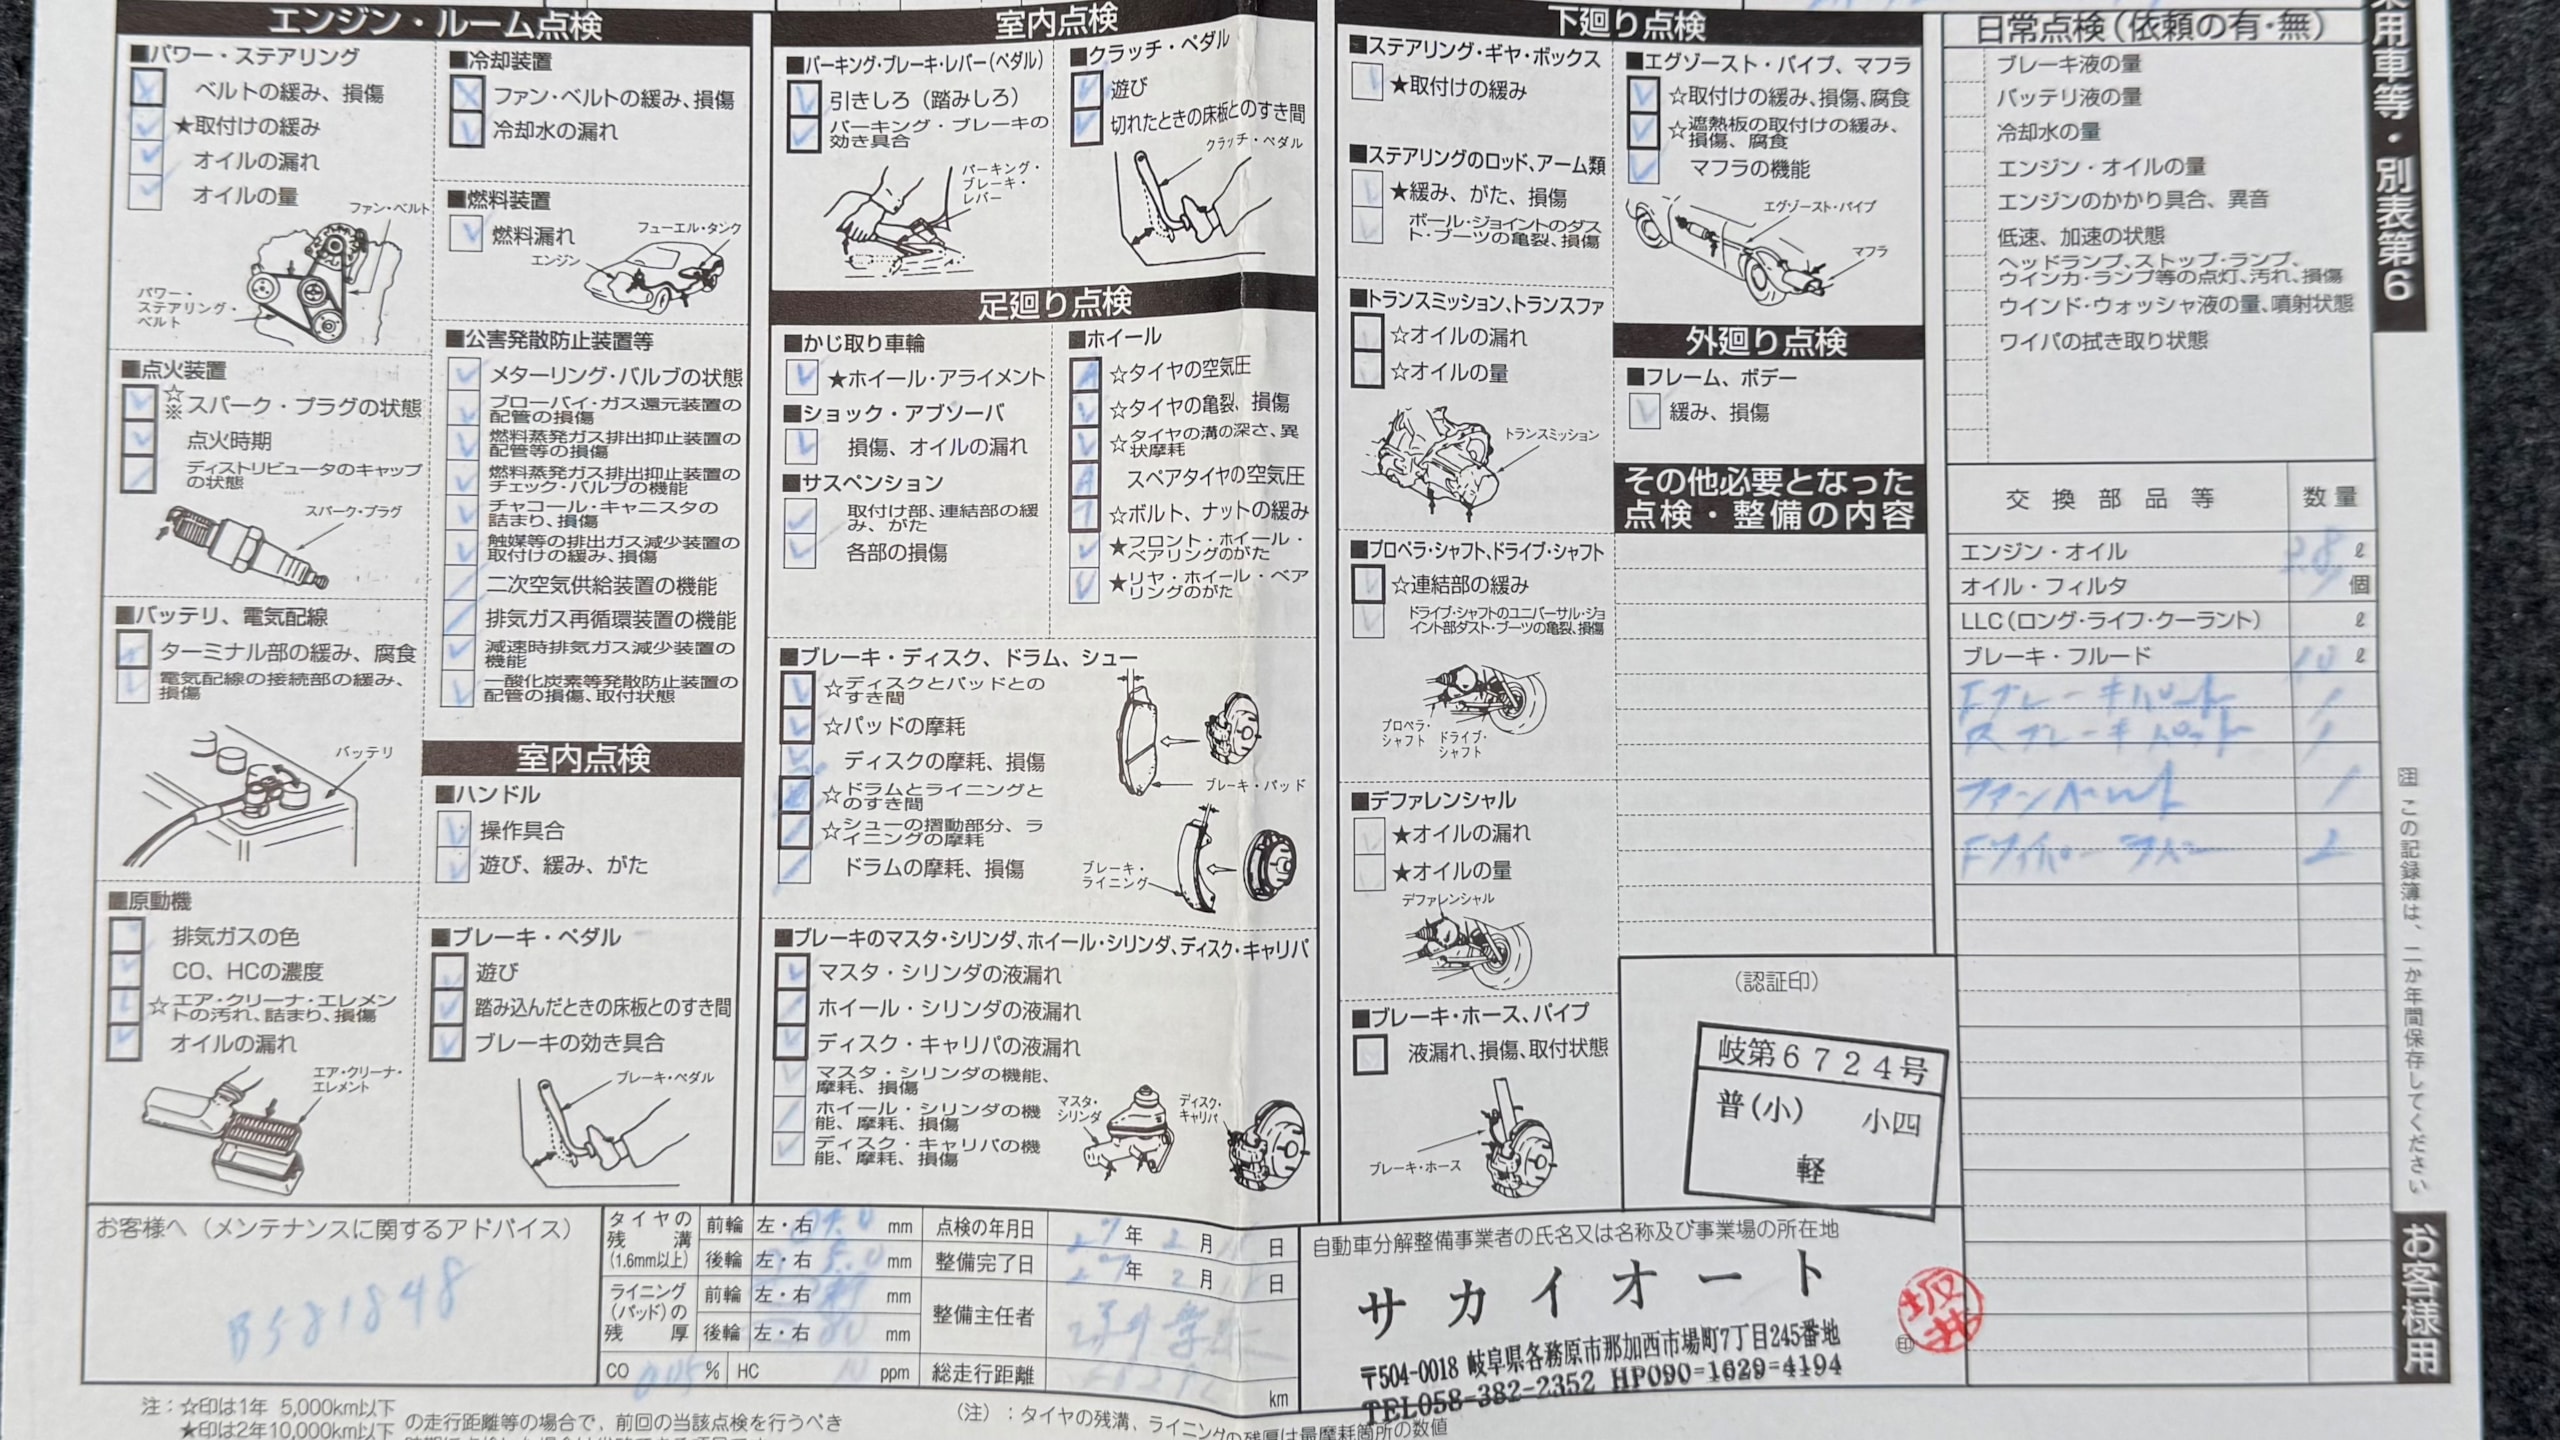 エンジン・ルーム点検
■パワー・ステアリング
ベルトの緩み、損傷
★取付けの緩み
オイルの漏れ
オイルの量
ファン・ベルト
パワー・
ステアリング・
ベルト
■点火装置
☆
※スパーク・プラグの状態
点火時期
ディストリビュータのキャップ
の状態
スパーク・プラグ
■バッテリ、電気配線
ターミナル部の緩み、腐食
電気配線の接続部の緩み、
損傷
バッテリ
■原動機
排気ガスの色
CO、HCの濃度
☆エア・クリーナ・エレメン
トの汚れ、詰まり、損傷
オイルの漏れ
エア・クリーナ・
エレメント
■冷却装置
ファン・ベルトの緩み、損傷
冷却水の漏れ
■燃料装置
燃料漏れ
フューエル・タンク
エンジン
■公害発散防止装置等
メターリング・バルブの状態
ブローバイ・ガス還元装置の
配管の損傷
燃料蒸発ガス排出抑止装置の
配管等の損傷
燃料蒸発ガス排出抑止装置の
チェック・バルブの機能
チャコール・キャニスタの
詰まり、損傷
触媒等の排出ガス減少装置の
取付けの緩み、損傷
二次空気供給装置の機能
排気ガス再循環装置の機能
減速時排気ガス減少装置の
機能
一酸化炭素等発散防止装置の
配管の損傷、取付状態
室内点検
■ハンドル
操作具合
遊び、緩み、がた
■ブレーキ・ペダル
遊び
踏み込んだときの床板とのすき間
ブレーキの効き具合
ブレーキ・ペダル
室内点検
■パーキング・ブレーキ・レバー(ペダル)
引きしろ(踏みしろ)
パーキング・ブレーキの
効き具合
パーキング・
ブレーキ・
レバー
■クラッチ・ペダル
遊び
切れたときの床板とのすき間
クラッチ・ペダル
足廻り点検
■かじ取り車輪
★ホイール・アライメント
■ショック・アブソーバ
損傷、オイルの漏れ
■サスペンション
取付け部、連結部の緩
み、がた
各部の損傷
■ホイール
☆タイヤの空気圧
☆タイヤの亀裂、損傷
☆タイヤの溝の深さ、異
状摩耗
スペアタイヤの空気圧
☆ボルト、ナットの緩み
★フロント・ホイール・
ベアリングのがた
★リヤ・ホイール・ベア
リングのがた
■ブレーキ・ディスク、ドラム、シュー
☆ディスクとパッドとの
すき間
☆パッドの摩耗
ディスクの摩耗、損傷
☆ドラムとライニングと
のすき間
☆シューの摺動部分、ラ
イニングの摩耗
ドラムの摩耗、損傷
ブレーキ・パッド
ブレーキ・
ライニング
■ブレーキのマスタ・シリンダ、ホイール・シリンダ、ディスク・キャリパ
マスタ・シリンダの液漏れ
ホイール・シリンダの液漏れ
ディスク・キャリパの液漏れ
マスタ・シリンダの機能、
摩耗、損傷
ホイール・シリンダの機
能、摩耗、損傷
ディスク・キャリパの機
能、摩耗、損傷
マスタ・
シリンダ
ディスク・
キャリパ
下廻り点検
■ステアリング・ギヤ・ボックス
★取付けの緩み
■ステアリングのロッド、アーム類
★緩み、がた、損傷
ボール・ジョイントのダス
ト・ブーツの亀裂、損傷
■トランスミッション、トランスファ
☆オイルの漏れ
☆オイルの量
トランスミッション
■プロペラ・シャフト、ドライブ・シャフト
☆連結部の緩み
ドライブ・シャフトのユニバーサル・ジョ
イント部ダスト・ブーツの亀裂、損傷
プロペラ・
シャフト
ドライブ・
シャフト
■デファレンシャル
★オイルの漏れ
★オイルの量
デファレンシャル
■ブレーキ・ホース、パイプ
液漏れ、損傷、取付状態
ブレーキ・ホース
■エグゾースト・パイプ、マフラ
☆取付けの緩み、損傷、腐食
☆遮熱板の取付けの緩み、
損傷、腐食
マフラの機能
エグゾースト・パイプ
マフラ
外廻り点検
■フレーム、ボデー
緩み、損傷
その他必要となった
点検・整備の内容
(認証印)
岐第6724号
普(小) 小四
軽
日常点検(依頼の有・無)
ブレーキ液の量
バッテリ液の量
冷却水の量
エンジン・オイルの量
エンジンのかかり具合、異音
低速、加速の状態
ヘッドランプ、ストップ・ランプ、
ウインカ・ランプ等の点灯、汚れ、損傷
ウインド・ウォッシャ液の量、噴射状態
ワイパの拭き取り状態
交換部品等 数量
エンジン・オイル 2.8 ℓ
オイル・フィルタ 個
LLC(ロング・ライフ・クーラント) ℓ
ブレーキ・フルード ℓ
Fブレーキパット 1
R ブレーキパット 1
ファンベルト 1
F 2
用車等・別表第6
注 この記録簿は、二か年間保存してください
お客様用
お客様へ(メンテナンスに関するアドバイス)
B581848
タイヤの
残溝
(1.6mm以上)
前輪 左・右 mm
後輪 左・右 5.0 mm
ライニング
(パッド)の
残厚
前輪 左・右 mm
後輪 左・右 mm
CO % HC ppm
点検の年月日 27年 2月 日
整備完了日 27年 2月 日
整備主任者
総走行距離 km
自動車分解整備事業者の氏名又は名称及び事業場の所在地
サカイオート
〒504-0018 岐阜県各務原市那加西市場町7丁目245番地
TEL058-382-2352 HP090-1629-4194
坂井
印
注:☆印は1年 5,000km以下
★印は2年10,000km以下
の走行距離等の場合で、前回の当該点検を行うべき
(注):タイヤの残溝、ライニングの残厚は最摩耗箇所の数値